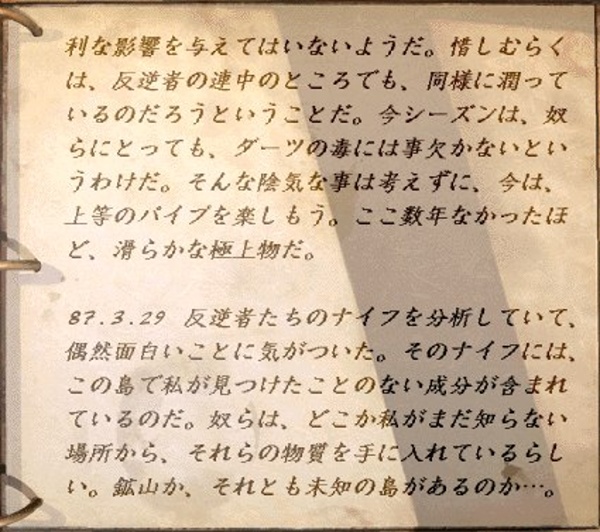 利な影響を与えてはいないようだ。惜しむらく
は、反逆者の連中のところでも、同様に潤って
いるのだろうということだ。今シーズンは、奴
らにとっても、ダーツの毒には事欠かないとい
うわけだ。そんな陰気な事は考えずに、今は、
上等のパイプを楽しもう。ここ数年なかったほ
ど、滑らかな極上物だ。
87.3.29 反逆者たちのナイフを分析していて、
偶然面白いことに気がついた。そのナイフには、
この島で私が見つけたことのない成分が含まれ
ているのだ。奴らは、どこか私がまだ知らない
場所から、それらの物質を手に入れているらし
い。鉱山か、それとも未知の島があるのか…。